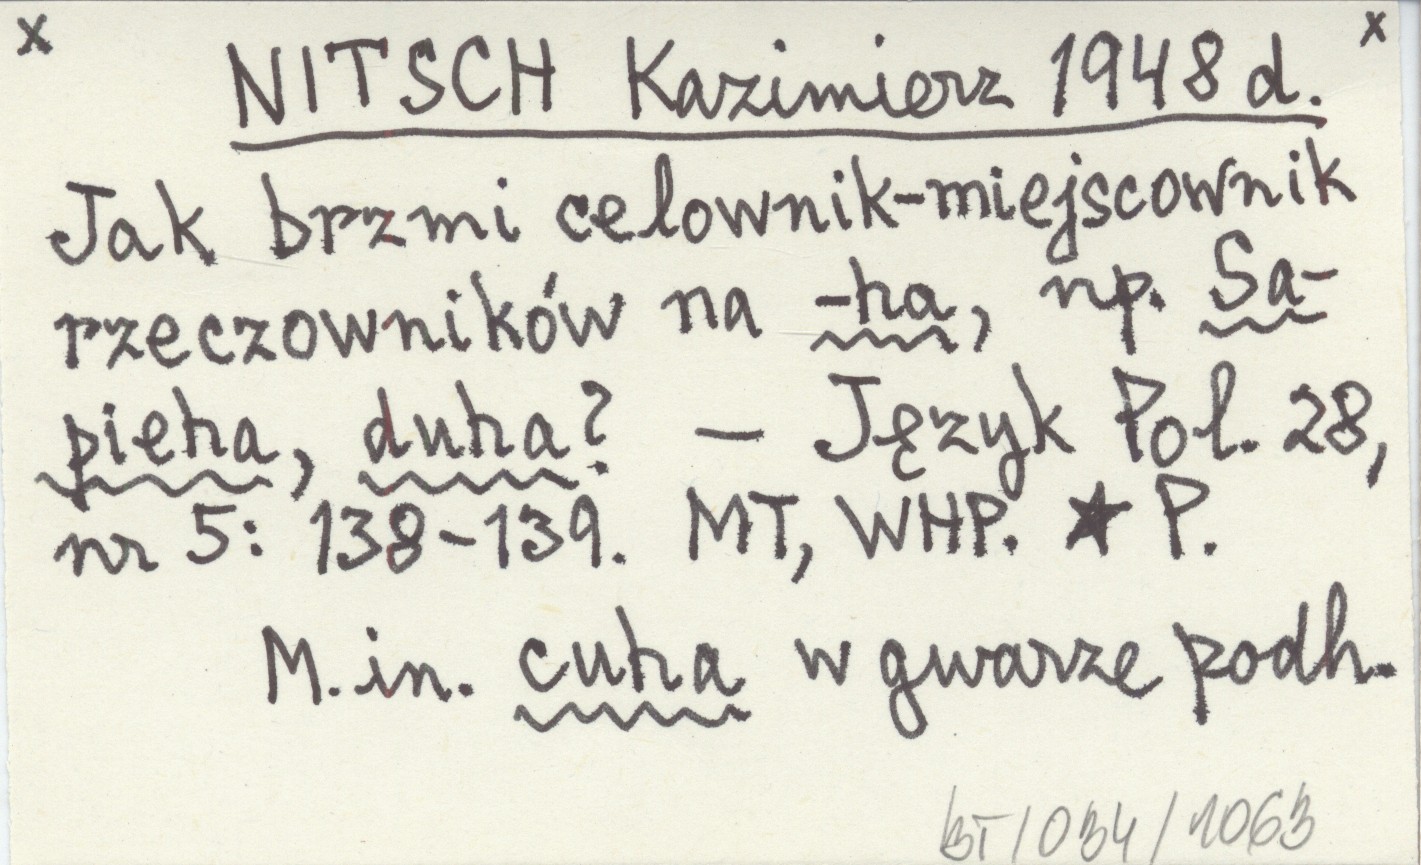 x x
NITSCH Kazimierz 1948 d.
Jak brzmi celownik-miejscownik
rzeczowników na -ha, np. Sa-
pieha, duha? — Język Pol. 28,
nr 5: 138-139. MT, WHP. ★ P.
M. in. cuha w gwarze podh.
BT/034/1063